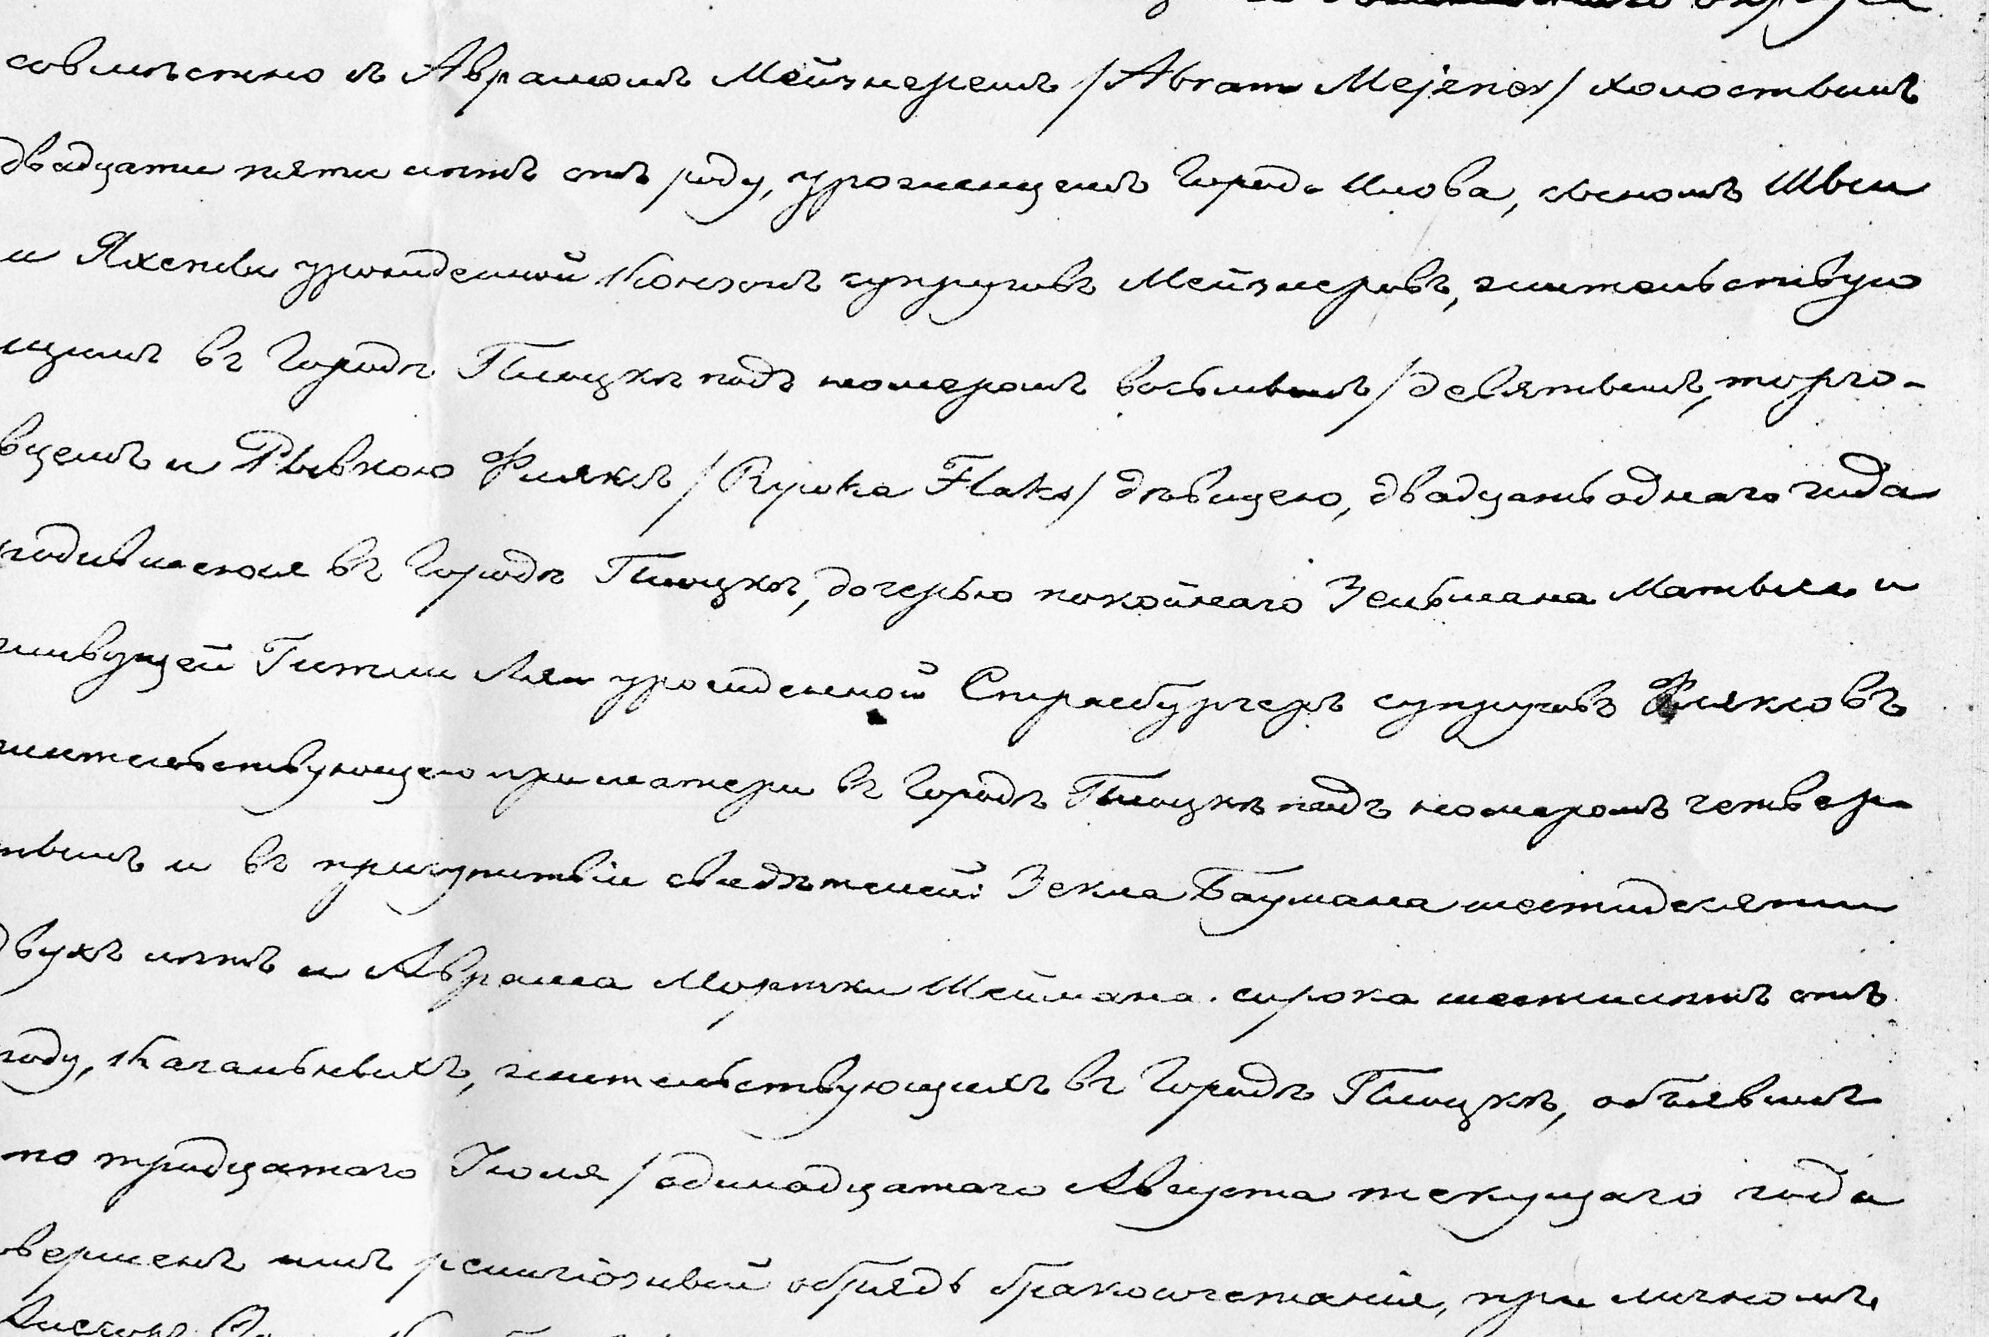 округа
совмѣстно съ Аврамомъ Мейзнеремъ /Abram Mejzner/ холостымъ
двадцати пяти лѣтъ отъ роду, уроженцемъ Города Илова, сыномъ
и Яхеты урожденной Конъ супруговъ Мейзнеровъ, жительствую
щимъ въ Городѣ Плоцкѣ подъ номеромъ восьмымъ/девятымъ, торго-
вцемъ и Рывкою Фляксъ /Rywka Flaks/ дѣвицею, двадцать однаго года
родившеюся въ Городѣ Плоцкѣ, дочерью покойнаго Зельмана и
живущей Гитли Леи урожденной Страсбургеръ супруговъ Фляксовъ
жительствующею при матери въ Городѣ Плоцкѣ подъ номеромъ четвер
тымъ и въ присутствіи свидѣтелей: Зекла Баумана шестидесяти
двухъ лѣтъ и Аврама Мортки сорока шести лѣтъ отъ
роду, Кагальныхъ, жительствующихъ въ Городѣ Плоцкѣ, объявилъ
что тридцатаго Іюля /одинадцатаго Августа текущаго года
совершенъ имъ религіозный обрядъ бракосочетанія, при личномъ